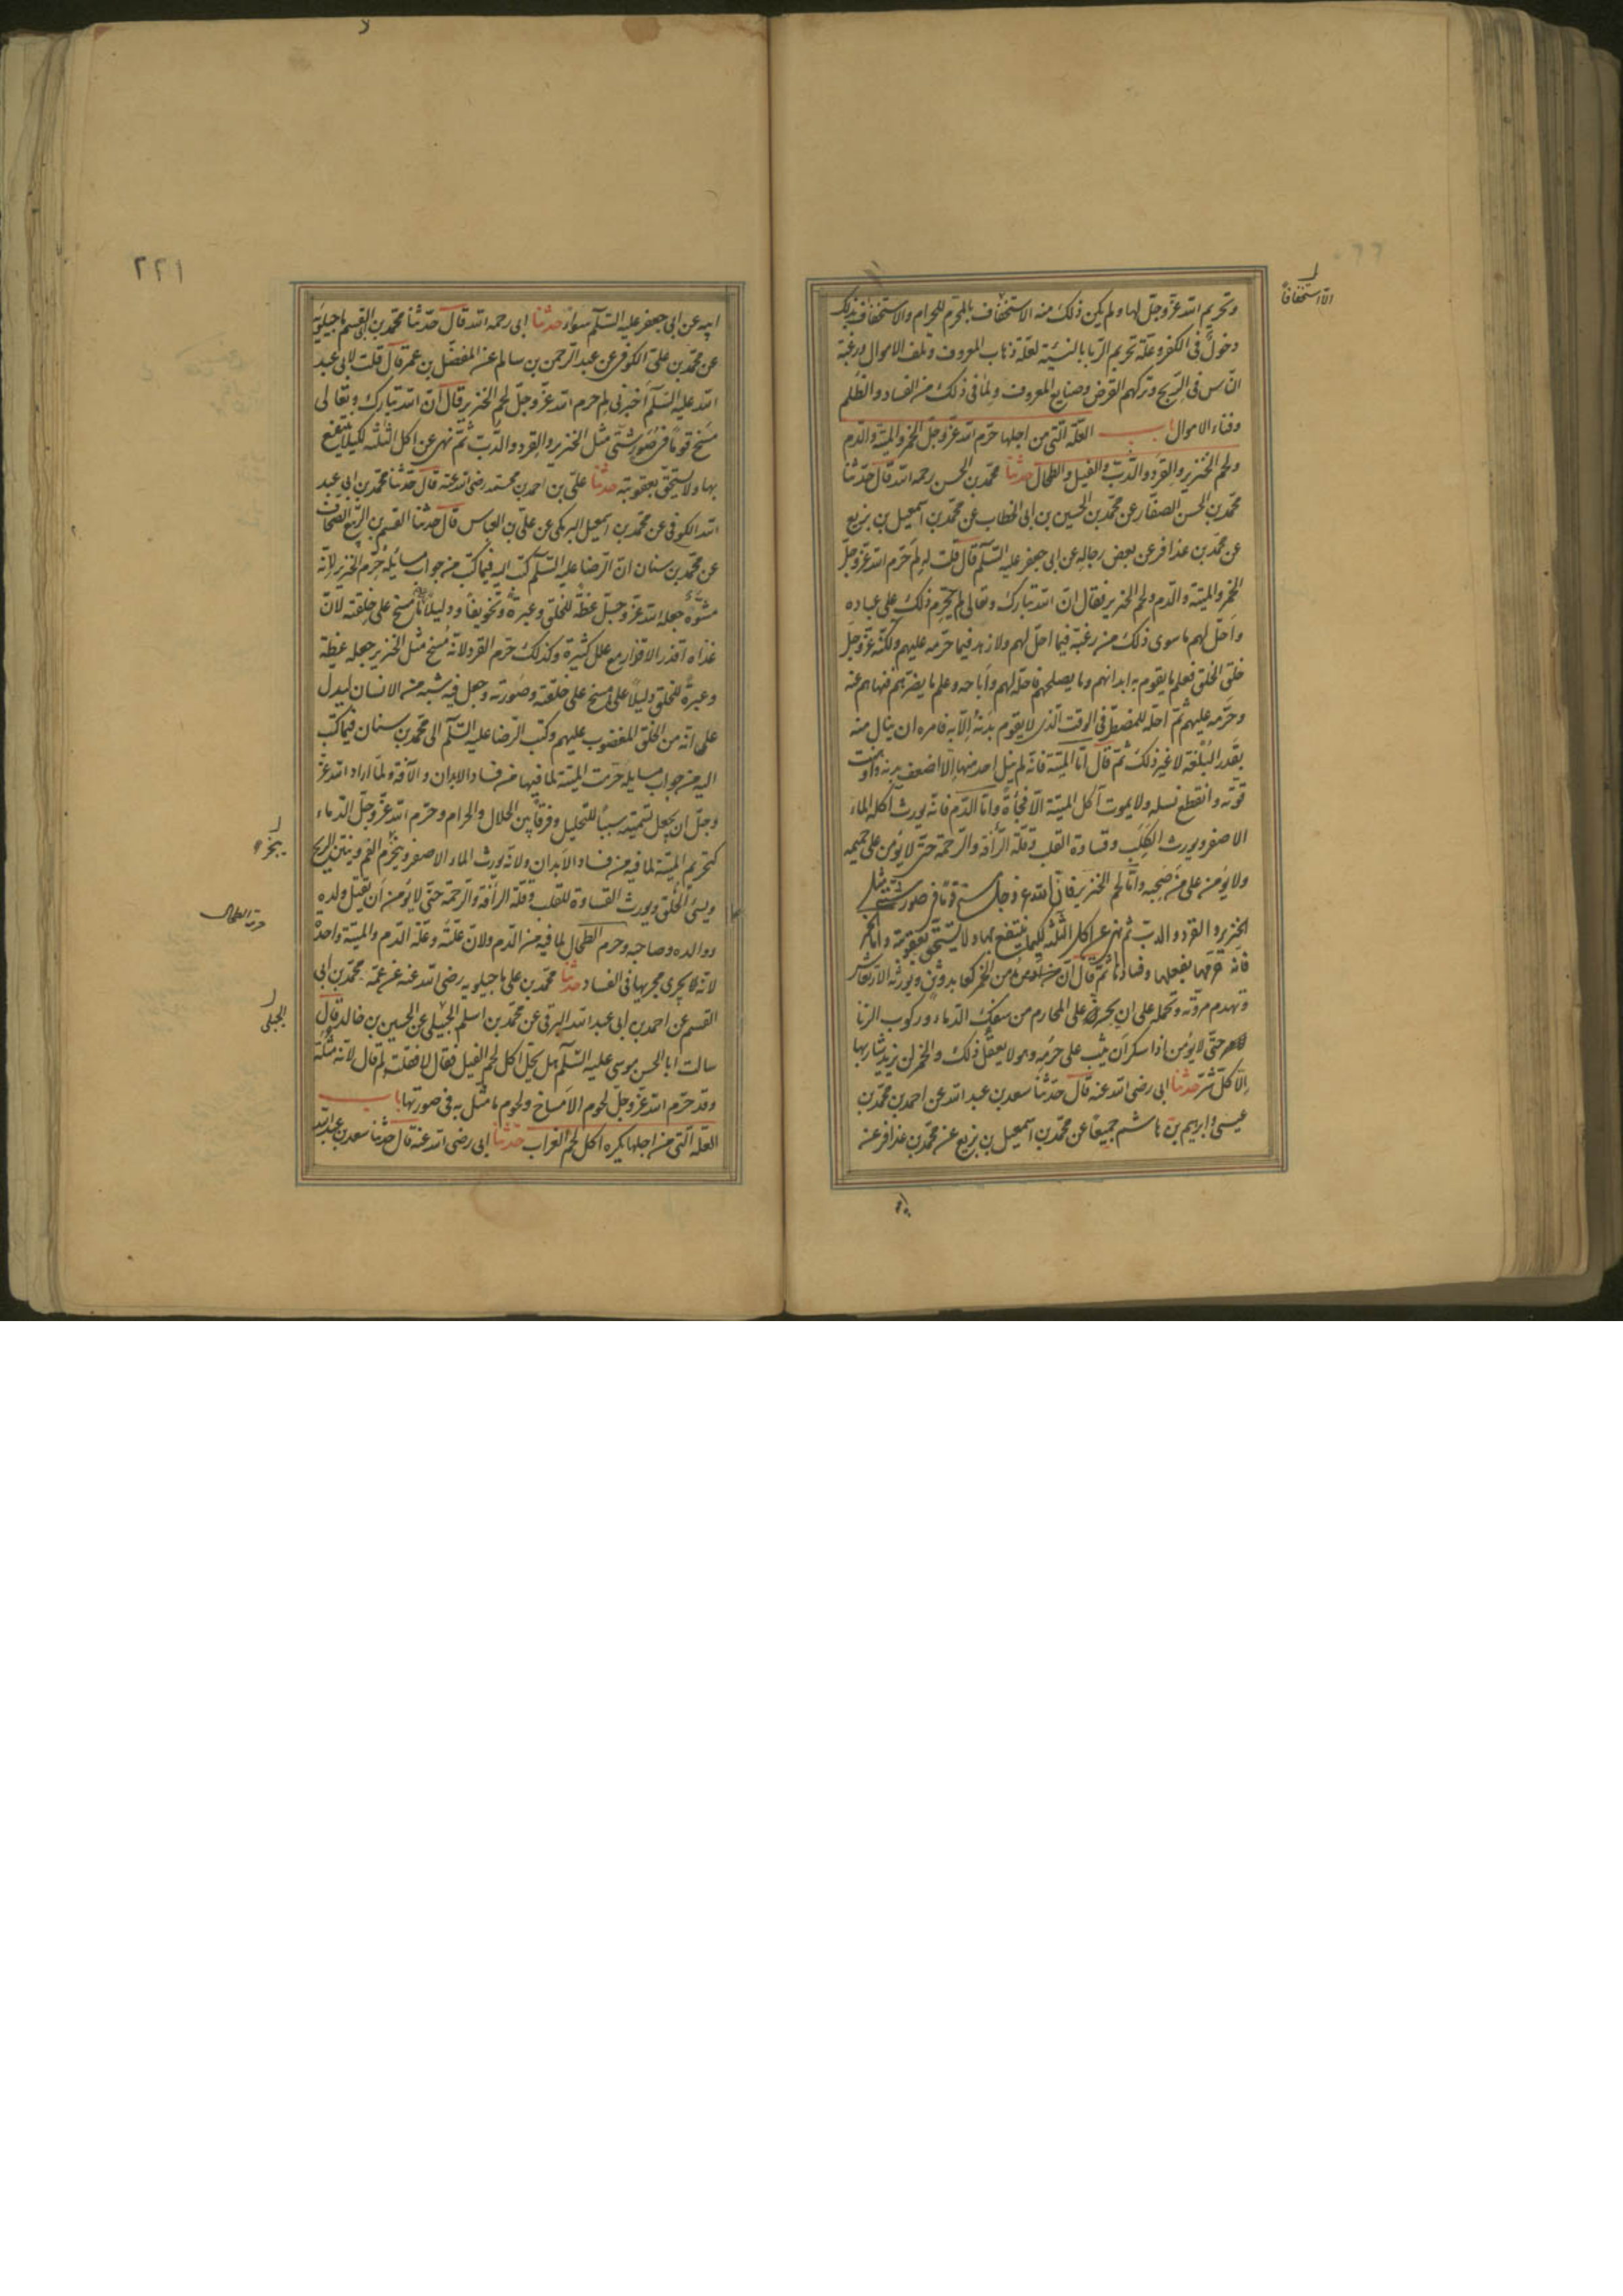 وتحريم الله عز وجل لها ولم يكن ذلك منه الا استخفاف بالمحرم للحرام والاستخفاف بذلك
الا استخفافا
دخول في الكفر وعلة تحريم الربا بالنسية لعلة ذهاب المعروف وتلف الاموال ورغبة
الناس في الربح وتركهم القرض وصنايع المعروف ولما في ذلك من الفساد والظلم
وفناء الاموال باب العلة التي من اجلها حرم الله عز وجل الخمر والميتة والدم
ولحم الخنزير والقرد والدب والفيل والطحال حدثنا محمد بن الحسن رحمه الله قال حدثنا
محمد بن الحسن الصفار عن محمد بن الحسين بن ابي الخطاب عن محمد بن اسمعيل بن بزيع
عن محمد بن عذافر عن بعض رجاله عن ابي جعفر عليه السلام قال قلت له لم حرم الله عز وجل
الخمر والميتة والدم ولحم الخنزير فقال ان الله تبارك وتعالى لم يحرم ذلك على عباده
واحل لهم ما سوى ذلك من رغبة فيما احل لهم ولا زهد فيما حرمه عليهم ولكنه عز وجل
خلق الخلق فعلم ما يقوم به ابدانهم وما يصلحهم فاحله لهم واباحه وعلم ما يضرهم فنهاهم عنه
وحرمه عليهم ثم احله للمضطر في الوقت الذي لا يقوم بدنه الا به فامره ان ينال منه
بقدر البلغة لا غير ذلك ثم قال اما الميتة فانه لم ينل احد منها الا اضعف بدنه واوهنت
قوته وانقطع نسله ولا يموت آكل الميتة الا فجأة واما الدم فانه يورث اكله الماء
الاصفر ويورث الكلب وقساوة القلب وقلة الرأفة والرحمة حتى لا يؤمن على حميمه
ولا يؤمن على من صحبه واما لحم الخنزير فان الله عز وجل مسخ قوما في صور شتى مثل
الخنزير والقرد والدب ثم نهى عن اكل الثلثة لكيما ينتفع بها ولا يستخف بعقوبته واما الخمر
فانه حرمها لفعلها وفسادها ثم قال ان مدمن الخمر كعابد وثن ويورثه الارتعاش
وتهدم مروته وتحمله على ان يجسر على المحارم من سفك الدماء وركوب الزنا
حتى لا يؤمن اذا سكر ان يثب على حرمه وهو لا يعقل ذلك والخمر لن يزيد شاربها
الا كل شر حدثنا ابي رضي الله عنه قال حدثنا سعد بن عبد الله عن احمد بن محمد بن
عيسى وابرهيم بن هاشم جميعا عن محمد بن اسمعيل بن بزيع عن محمد بن عذافر عن
ابيه
٢٢١
ابيه عن ابي جعفر عليه السلام سواء حدثنا ابي رحمه الله قال حدثنا محمد بن ابي القسم ماجيلويه
عن محمد بن علي الكوفي عن عبد الرحمن بن سالم عن المفضل بن عمر قال قلت لابي عبد
الله عليه السلام اخبرني لم حرم الله عز وجل لحم الخنزير قال ان الله تبارك وتعالى
مسخ قوما في صور شتى مثل الخنزير والقرد والدب ثم نهى عن اكل الثلثة لكيلا ينتفع
بها ولا يستخف بعقوبته حدثنا علي بن احمد بن محمد رضي الله عنه قال حدثنا محمد بن ابي عبد
الله الكوفي عن محمد بن اسمعيل البرمكي عن علي بن العباس قال حدثنا القسم بن الربيع الصحاف
عن محمد بن سنان ان الرضا عليه السلام كتب اليه فيما كتب من جواب مسايله حرم الخنزير لانه
مشوه جعله الله عز وجل عظة للخلق وعبرة وتخويفا ودليلا على ما مسخ على خلقته لان
غذاه اقذر الاقذار مع علل كثيرة وكذلك حرم القرد لانه مسخ مثل الخنزير جعله عظة
وعبرة للخلق دليلا على ما مسخ على خلقته وصورته وجعل فيه شبه من الانسان ليدل
على انه من الخلق المغضوب عليهم وكتب الرضا عليه السلام الى محمد بن سنان فيما كتب
اليه من جواب مسايله حرمت الميتة لما فيها من فساد الابدان والآفة ولما اراد الله عز
وجل ان يجعل تسميته سببا للتحليل وفرقا بين الحلال والحرام وحرم الله عز وجل الدماء
كتحريم الميتة لما فيه من فساد الابدان ولانه يورث الماء الاصفر ويبخر الفم وينتن الريح
يبخر
ويسئ الخلق ويورث القساوة للقلب وقلة الرأفة والرحمة حتى لا يؤمن ان يقتل ولده
ووالده وصاحبه وحرم الطحال لما فيه من الدم ولان علته وعلة الدم والميتة واحدة
حرمة الطحال
لانه يجري مجريها في الفساد حدثنا محمد بن علي ماجيلويه رضي الله عنه عن عمه محمد بن ابي
القسم عن احمد بن ابي عبد الله البرقي عن محمد بن اسلم الجبلي عن الحسين بن خالد قال
الجبلي
سالت ابا الحسن موسى عليه السلام هل يحل اكل لحم الفيل فقال لا فقلت ولم قال لانه مثلة
وقد حرم الله عز وجل لحوم الامساخ ولحوم ما مثل به في صورتها باب
العلة التي من اجلها يكره اكل لحم الغراب حدثنا ابي رضي الله عنه قال حدثنا سعد بن عبد الله